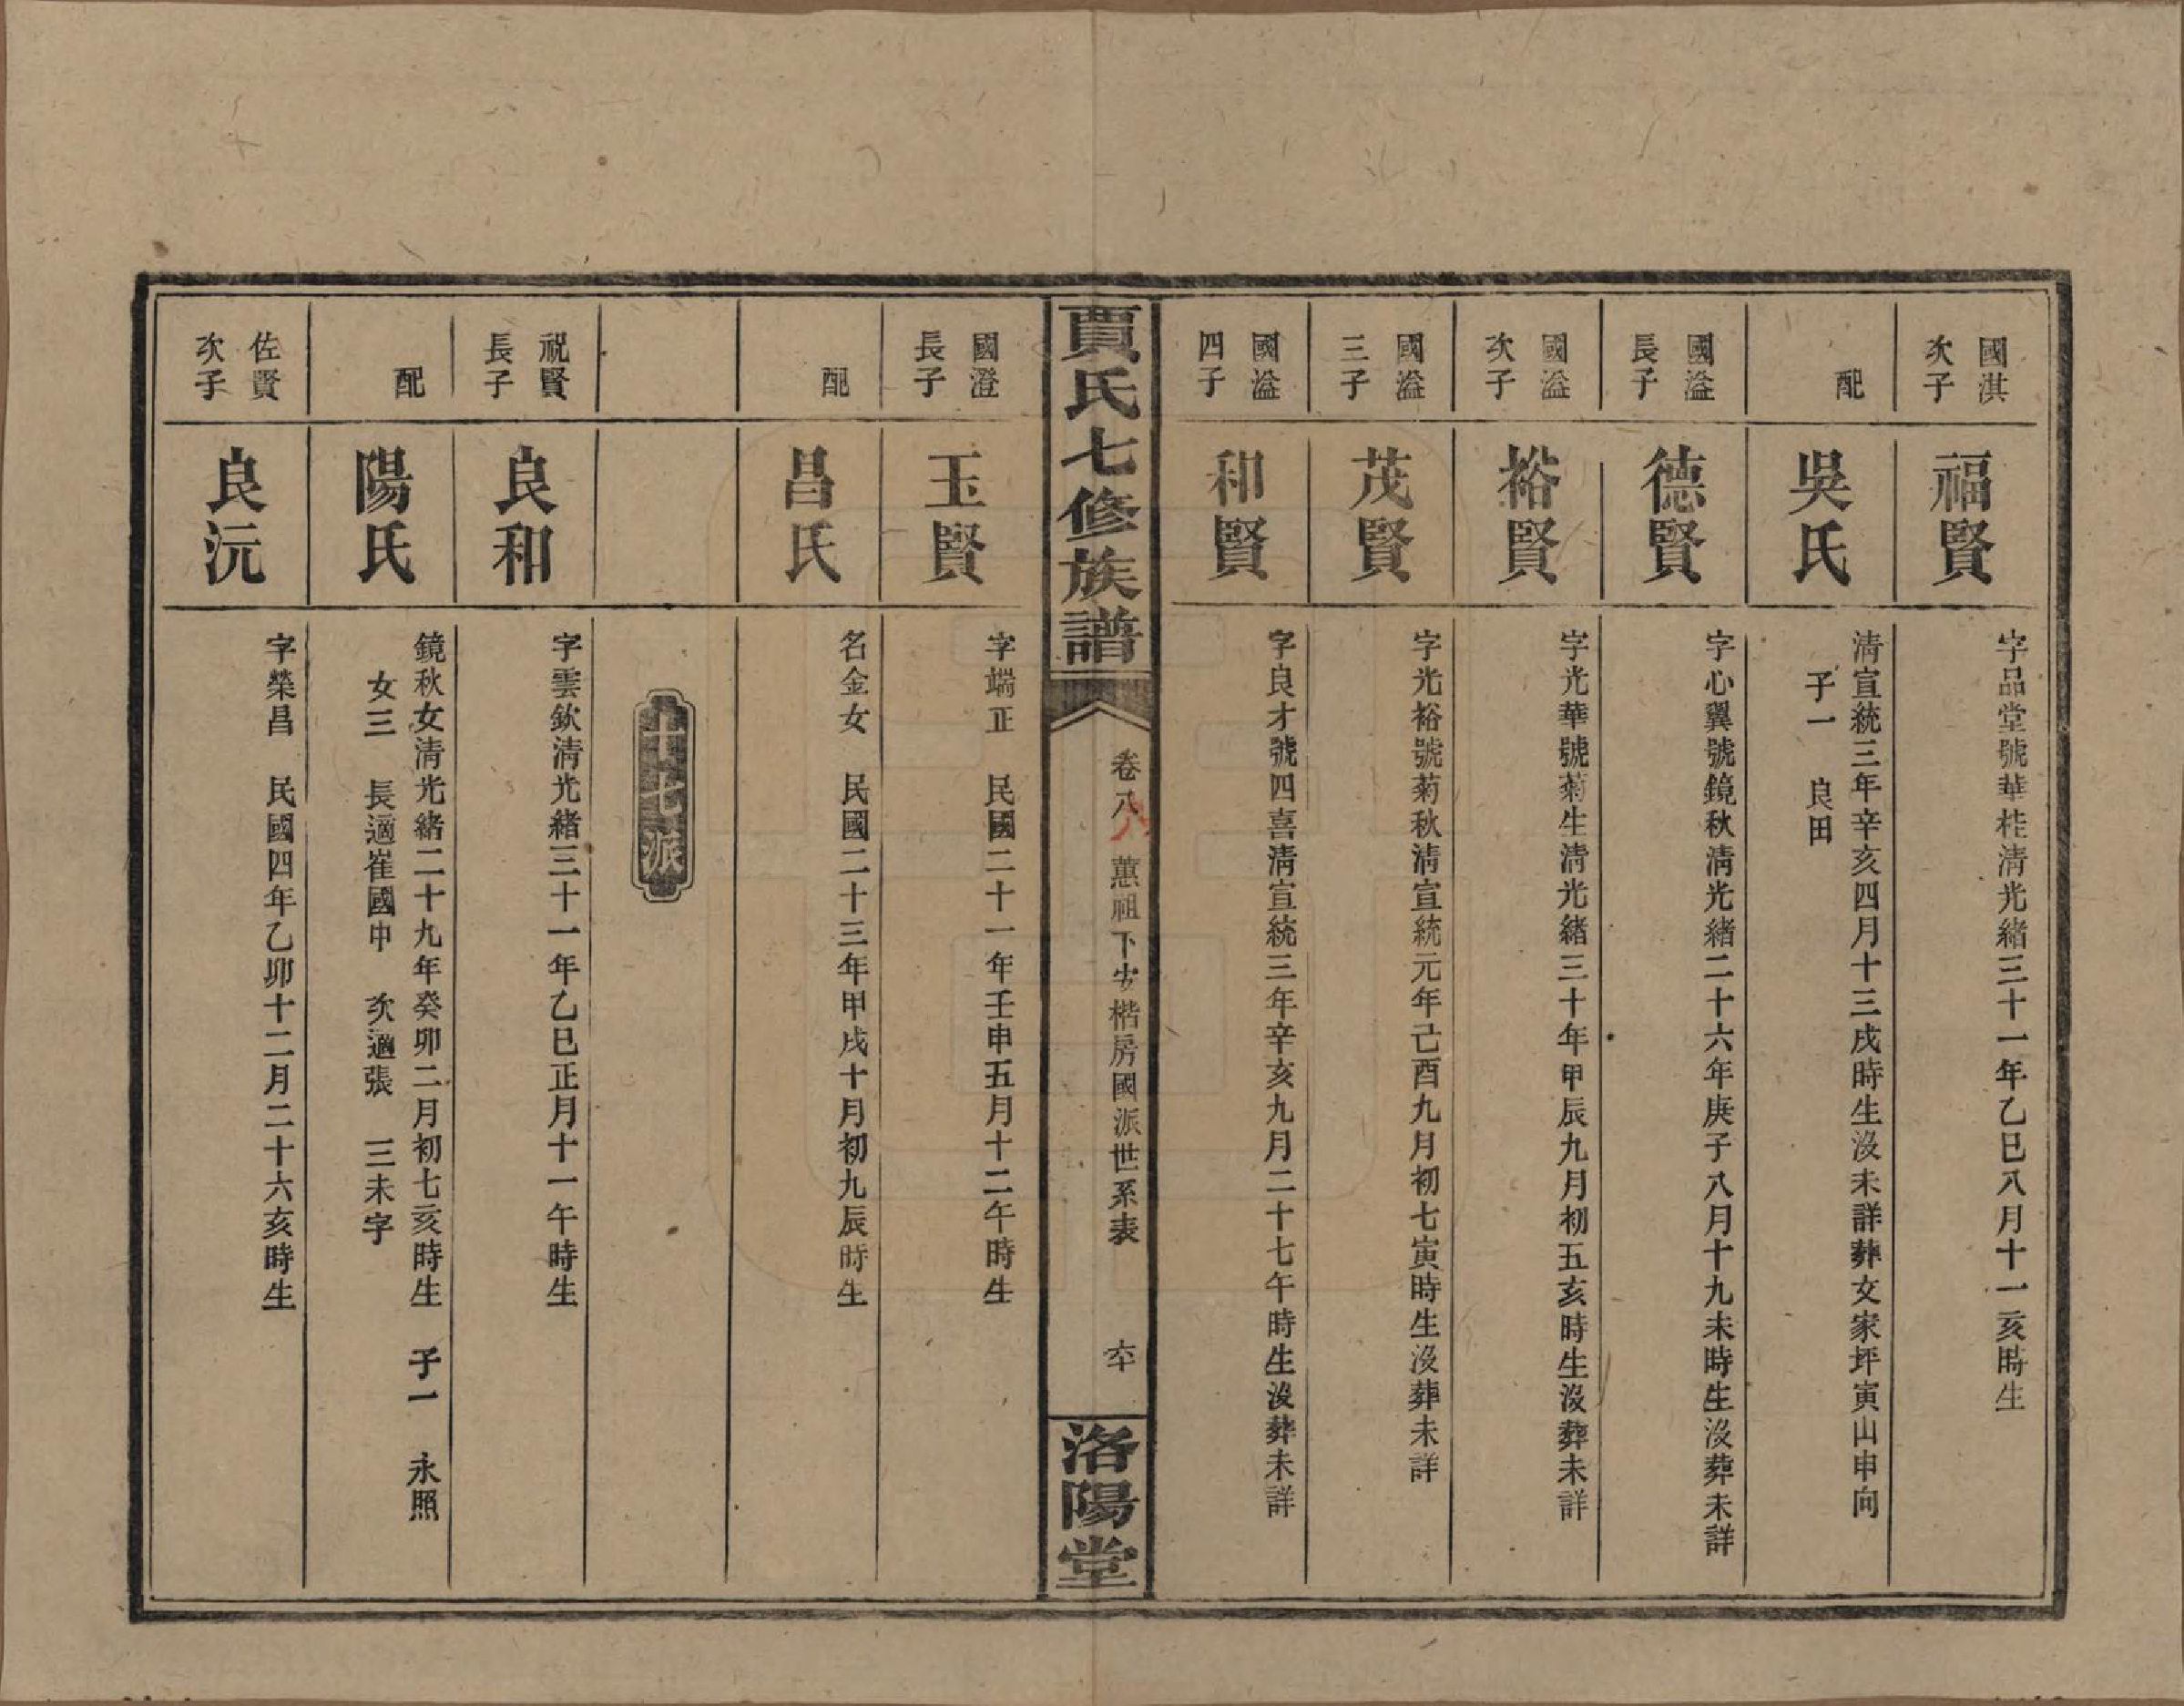 國淇
次子
福賢
字品堂號華桂清光緒三十一年乙巳八月十一亥時生
配
吳氏
清宣統三年辛亥四月十三戌時生沒未詳葬文家坪寅山申向
子一　良田
國溢
長子
德賢
字心翼號鏡秋清光緒二十六年庚子八月十九未時生沒葬未詳
國溢
次子
裕賢
字光華號菊生清光緒三十年甲辰九月初五亥時生沒葬未詳
國溢
三子
茂賢
字光裕號菊秋清宣統元年己酉九月初七寅時生沒葬未詳
國溢
四子
和賢
字良才號四喜清宣統三年辛亥九月二十七午時生沒葬未詳
賈氏七修族譜
卷八
蕙祖下安楷房國派世系表
六十
洛陽堂
國澄
長子
玉賢
字端正　民國二十一年壬申五月十二午時生
配
昌氏
名金女　民國二十三年甲戌十月初九辰時生
十七派
祝賢
長子
良和
字雲欽清光緒三十一年乙巳正月十一午時生
配
陽氏
鏡秋女清光緒二十九年癸卯二月初七亥時生　子一　永照
女三　長適崔國申　次適張　三未字
佐賢
次子
良沅
字榮昌　民國四年乙卯十二月二十六亥時生